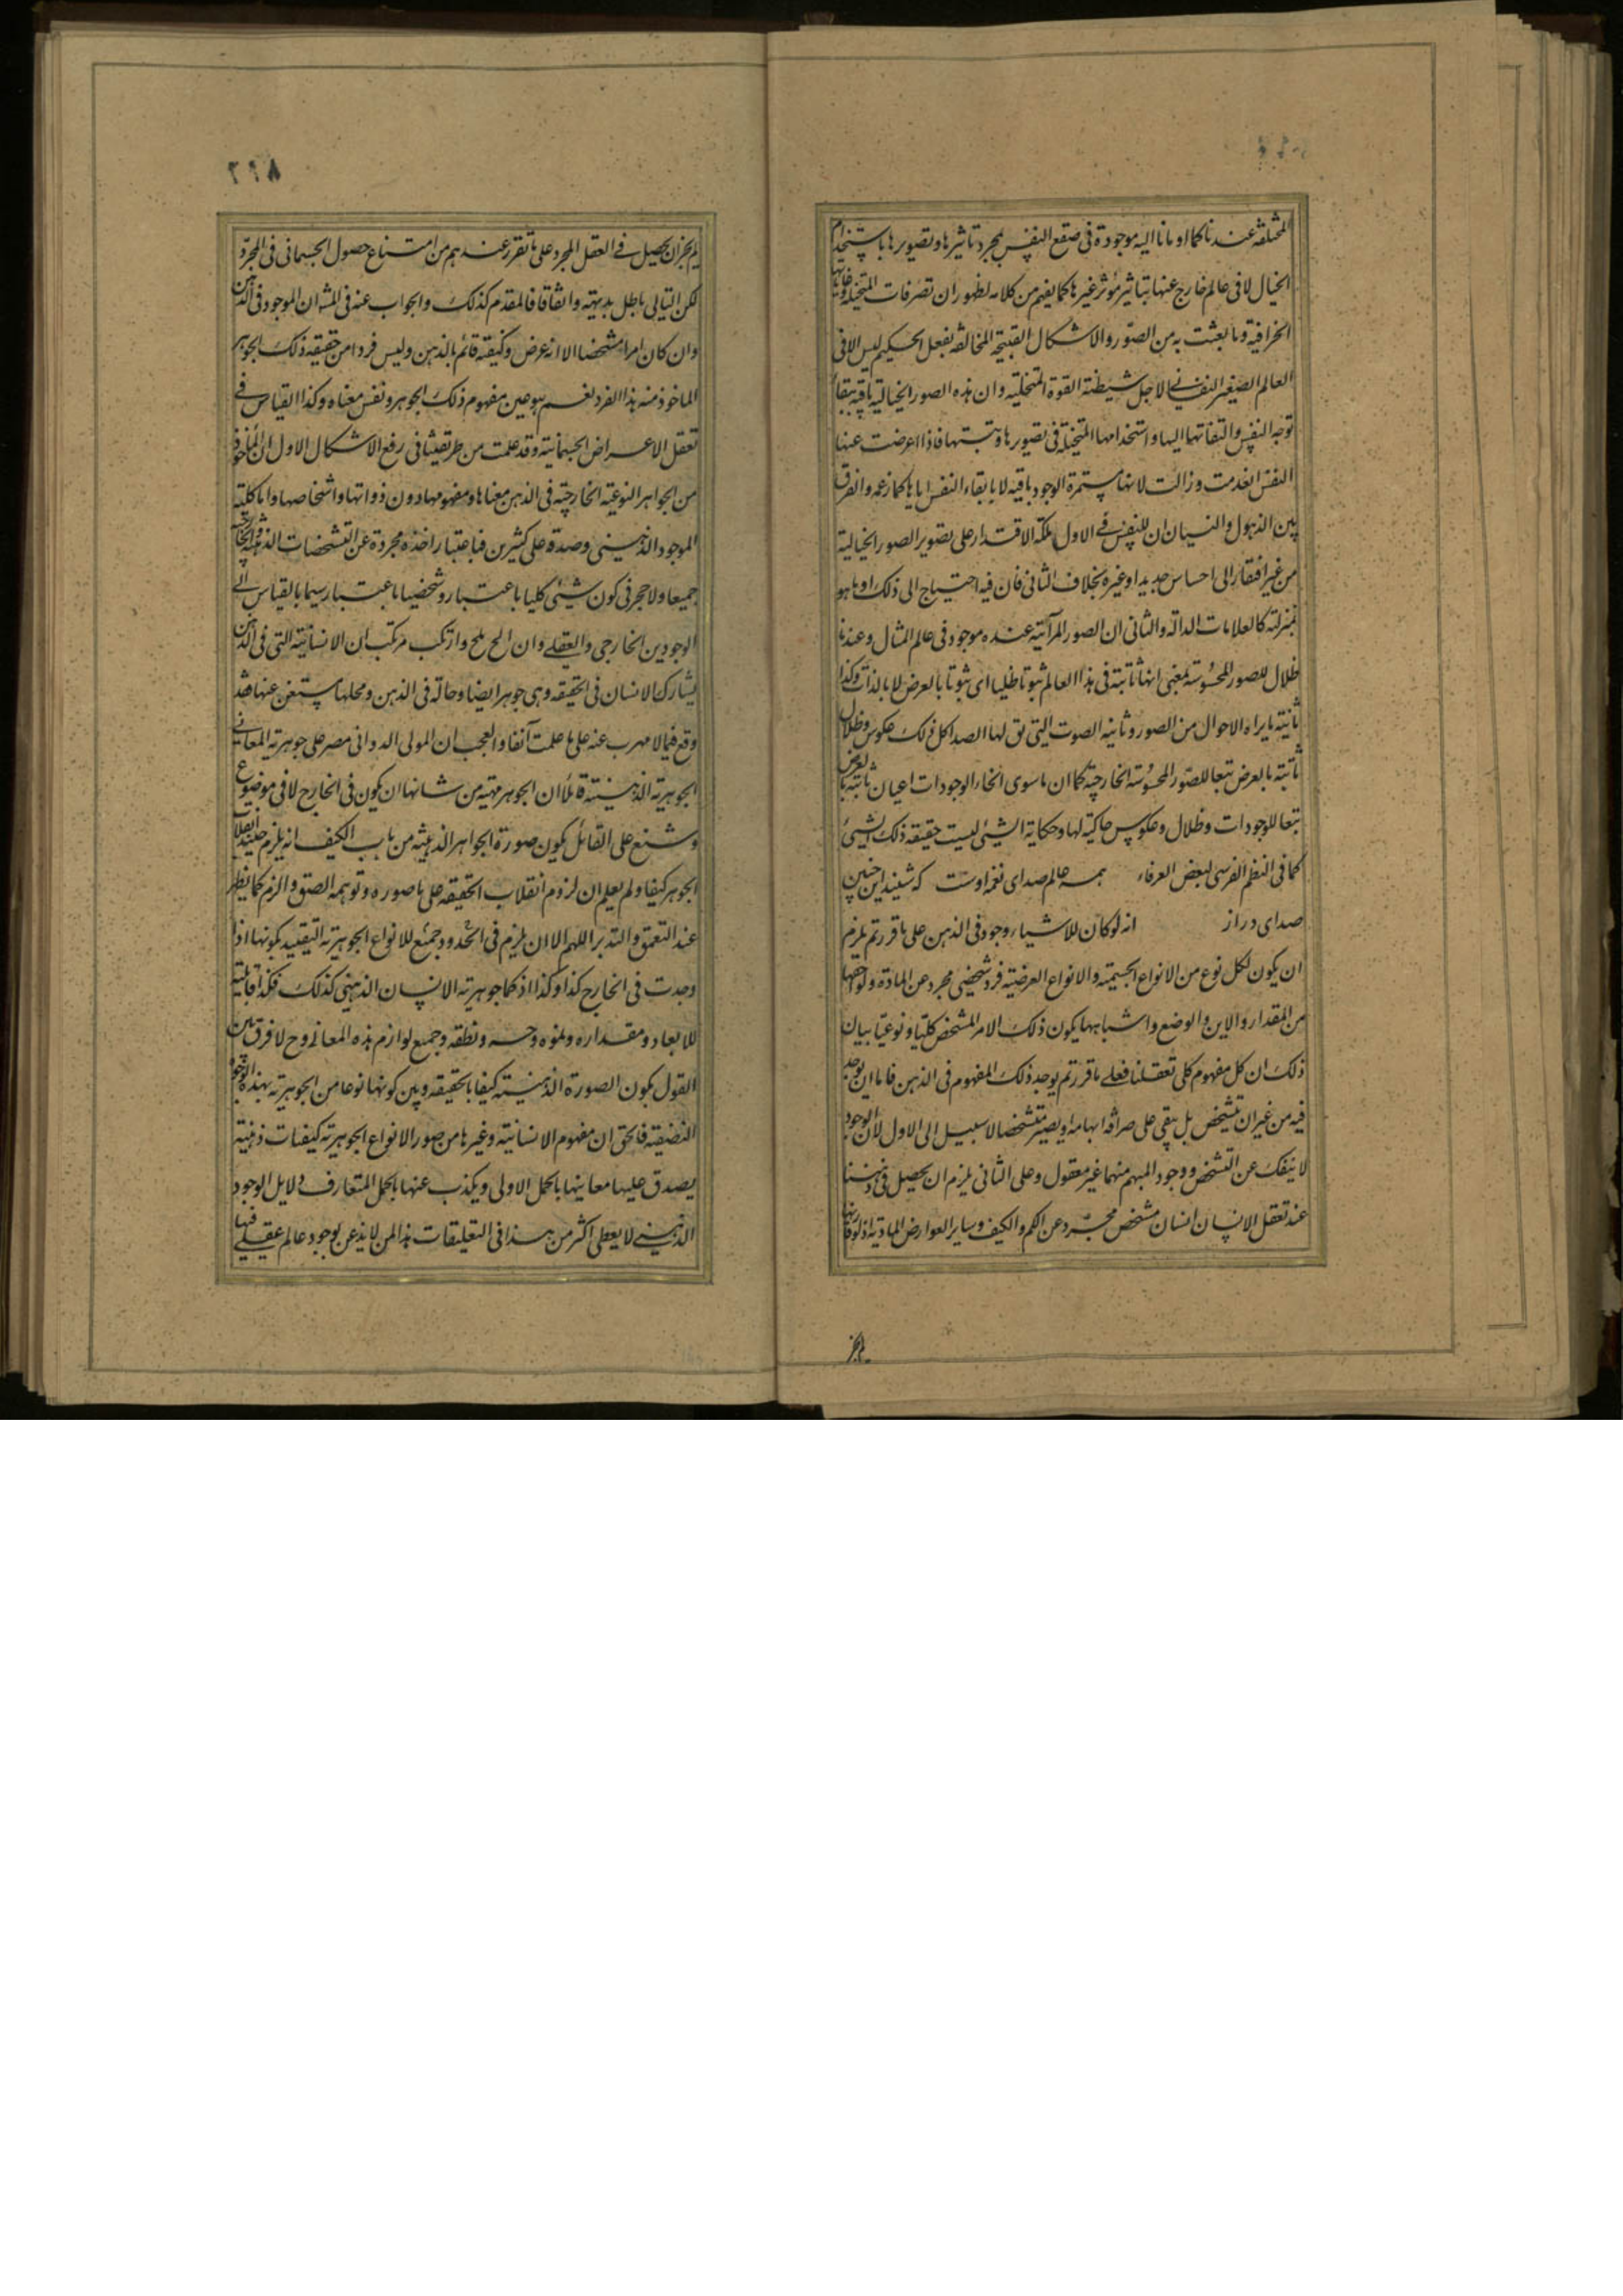 المتخيلة عندنا كما اومانا اليه موجودة فى صقع النفس بمجرد تاثيرها وتصويرها باستخدام
الخيال لا فى عالم خارج عنها بتاثير مؤثر غيرها كما يفهم من كلامه لظهور ان تصرفات المتخيلة
الجزافية وما يعبث به من الصور والاشكال القبيحة المخالفة لفعل الحكيم ليس الا فى
العالم الصغير النفسانى لاجل شيطنة القوة المتخيلة وان هذه الصور الخيالية باقية ببقاء
توجه النفس والتفاتها اليها واستخدامها المتخيلة فى تصويرها وتثبيتها فاذا اعرضت عنها
النفس انعدمت وزالت لا انها مستمرة الوجود باقية لا بابقاء النفس اياها كما زعمه والفرق
بين الذهول والنسيان ان للنفس فى الاول ملكة الاقتدار على تصوير الصور الخيالية
من غير افتقار الى احساس جديد او غيره بخلاف الثانى فان فيه احتياج الى ذلك او ما هو
بمنزلته كالعلامات الدالة والثانى ان الصور المرآتية عنده موجود فى عالم المثال وعندنا
ظلال للصور المحسوسة بمعنى انها ثابتة فى هذا العالم ثبوتا ظليا اى ثبوتا بالعرض لا بالذات وكذا
ثانية ما يراه الاحوال من الصور وثانية الصوت التى يق لها الصدا كل ذلك عكوس وظلال
ثابتة بالعرض تبعا للصور المحسوسة الخارجية كما ان ماسوى انحاء الوجودات اعيان ثابتة بالعرض
تبعا للوجودات وظلال وعكوس حاكية لها وحكاية الشئ ليست حقيقة ذلك الشئ
كما فى النظم الفرسى لبعض العرفاء همه عالم صداى نغمه اوست كه شنيد اين چنين
صداى دراز انه لو كان للاشياء وجود فى الذهن على ما قررتم يلزم
ان يكون لكل نوع من الانواع الجسمية والانواع العرضية فرد شخصى مجرد عن المادة ولواحقها
من المقدار والاين والوضع واشباهها يكون ذلك الامر المشخص كليا ونوعيا بيان
ذلك ان كل مفهوم كلى تعقلنا فعلى ما قررتم يوجد ذلك المفهوم فى الذهن فاما ان يوجد
فيه من غير ان يتشخص بل بقى على صرافة ابهامه او يصير متشخصا لا سبيل الى الاول لان الوجود
لا ينفك عن التشخص ووجود المبهم مبهما غير معقول وعلى الثانى يلزم ان يحصل فى ذهننا
عند تعقل الانسان انسان مشخص مجرد عن الكم والكيف وساير العوارض المادية اذ لو قارنها
لم يجز
٢٩٨
لم يجز ان يحصل فى العقل المجرد على ما تقرر عندهم من امتناع حصول الجسمانى فى المجرد
لكن التالى باطل بديهة واتفاقا فالمقدم كذلك والجواب عنه فى المش ان الموجود فى الذهن
وان كان امرا مشخصا الا انه عرض وكيفية قائم بالذهن وليس فردا من حقيقة ذلك الجوهر
الماخوذ منه هذا الفرد نعم هو عين مفهوم ذلك الجوهر ونفس معناه وكذا القياس فى
تعقل الاعراض الجسمانية وقد علمت من طريقتنا فى رفع الاشكال الاول ان المأخوذ
من الجواهر النوعية الخارجية فى الذهن معناها ومفهومها دون ذواتها واشخاصها واما كلية
الموجود الذهنى وصدقه على كثيرين فباعتبار اخذه مجردة عن التشخصات الذهنية والخارجية
جميعا ولا حجر فى كون شئ كليا باعتبار وشخصيا باعتبار سيما بالقياس الى
الوجودين الخارجى والعقلى وان الح ملح وارتكب مرتكب ان الانسانية التى فى الذهن
يشارك الانسان فى الحقيقة وهى جوهر ايضا وحالة فى الذهن ومحلها مستغن عنها فقد
وقع فيما لا مهرب عنه على ما علمت آنفا والعجب ان المولى الدوانى مصر على جوهرية المعانى
الجوهرية الذهنية قائلا ان الجوهر مهية من شانها ان يكون فى الخارج لا فى موضوع
وشنع على القائل بكون صورة الجواهر الذهنية من باب الكيف انه يلزم حينئذ انقلاب
الجوهر كيفا ولم يعلم ان لزوم انقلاب الحقيقة على ما صوره وتوهمه الصق والزم كما يظهر
عند التعمق والتدبر اللهم الا ان يلزم فى الحدود جميع للانواع الجوهرية التقييد بكونها اذا
وجدت فى الخارج كذا وكذا اذ كما جوهرية الانسان الذهنى كذلك فكذا قابليته
للابعاد ومقداره ونموه وحسه ونطقه وجميع لوازم هذه المعانى وح لا فرق بين
القول بكون الصورة الذهنية كيفا بالحقيقة وبين كونها نوعا من الجوهرية بهذه الوجوه
التضيقة فالحق ان مفهوم الانسانية وغيرها من صور الانواع الجوهرية كيفيات ذهنية
يصدق عليها معانيها بالحمل الاولى ويكذب عنها بالحمل المتعارف ودلايل الوجود
الذهنى لا يعطى اكثر من هذا فى التعليقات هذا لمن لا يذعن بوجود عالم عقلى فيها